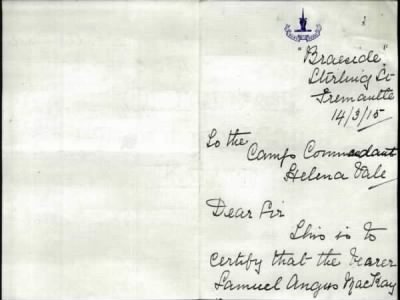 "Braeside"
Stirling St
Fremantle
14/3/15
To the
Camp Commandant
Helena Vale
Dear Sir
This is to
certify that the bearer
Samuel Angus MacKay